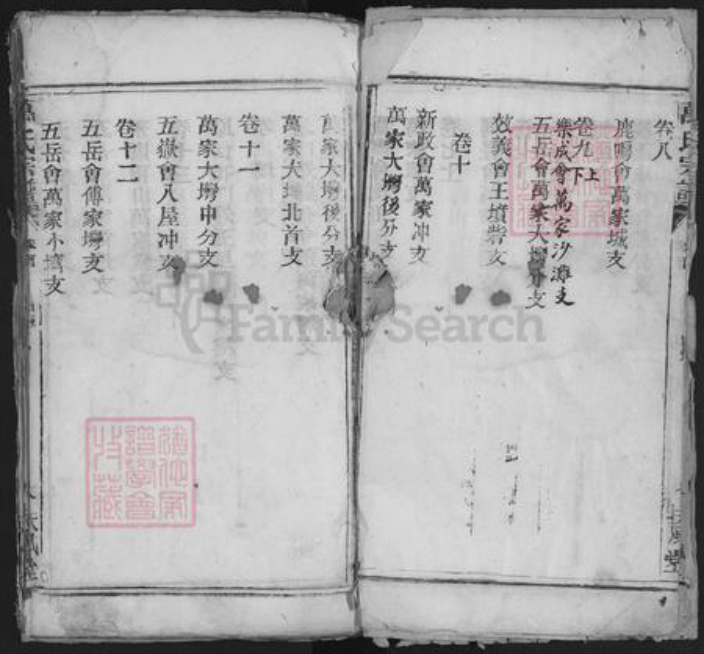 萬氏宗譜
卷八
鹿鳴會萬家城支
卷九上
下
樂成會萬家沙灘支
五岳會萬家大塆分支
效義會王墳砦支
卷十
新政會萬家冲支
萬家大塆後分支
萬家大塆後分支
萬家大塆北首支
卷十一
萬家大塆中分支
五嶽會八屋冲支
卷十二
五岳會傅家塆支
五岳會萬家小塆支
萬氏宗譜
FamilySearch